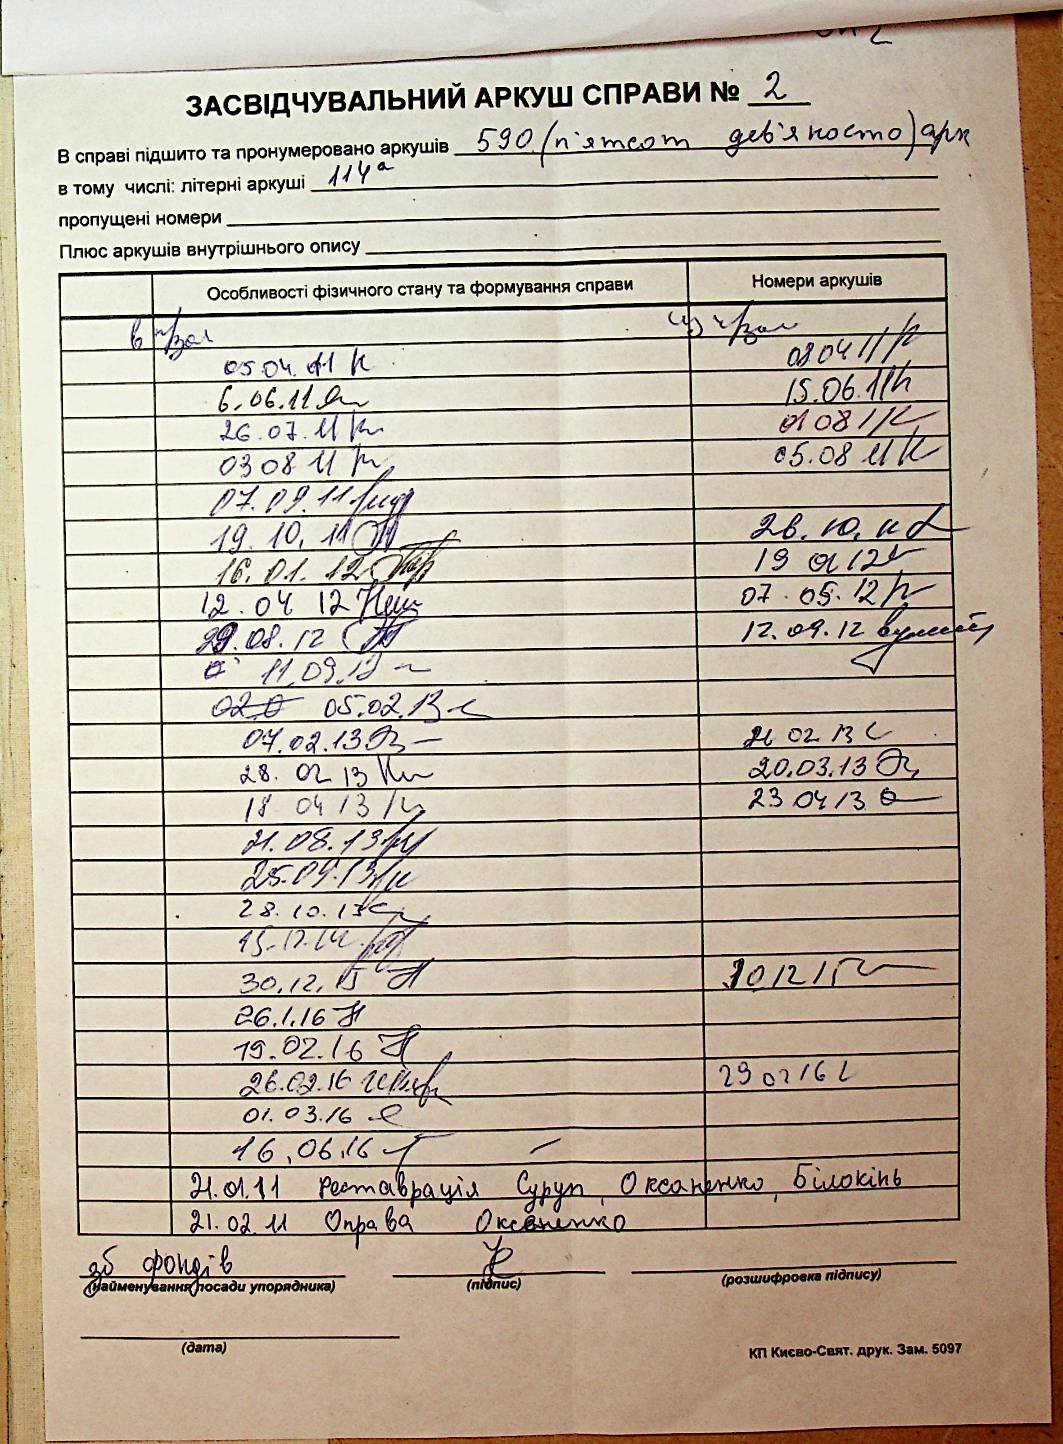 ЗАСВІДЧУВАЛЬНИЙ АРКУШ СПРАВИ № 2
В справі підшито та пронумеровано аркушів 590 (п'ятсот дев'яносто) арк
в тому числі: літерні аркуші 114а
пропущені номери
Плюс аркушів внутрішнього опису
Особливості фізичного стану та формування справи Номери аркушів
в ч/зал із ч/зал
05.04.11 08 04 11
6.06.11 15.06.11
26.07.11 01 08 11
03 08 11 05.08 11
07.09.11
19.10.11 26.10.11
16.01.12 19 01 12
12.04 12 07.05.12
29.08.12 12.09.12
11.09.12
02.0 05.02.13
07.02.13 21 02 13
28.02 13 20.03.13
18 04 13 23 04 13
21.08.13
25.09.13
28.10.13
15.12.14
30.12.15 30 12 15
26.1.16
19.02.16
26.02.16 29 02 16
01.03.16
16.06.16
21.01.11 Реставрація Суруп, Оксаненко, Білокінь
21.02.11 Оправа Оксаненко
зб фондів
(найменування посади упорядника) (підпис) (розшифровка підпису)
(дата)
КП Києво-Свят. друк. Зам. 5097